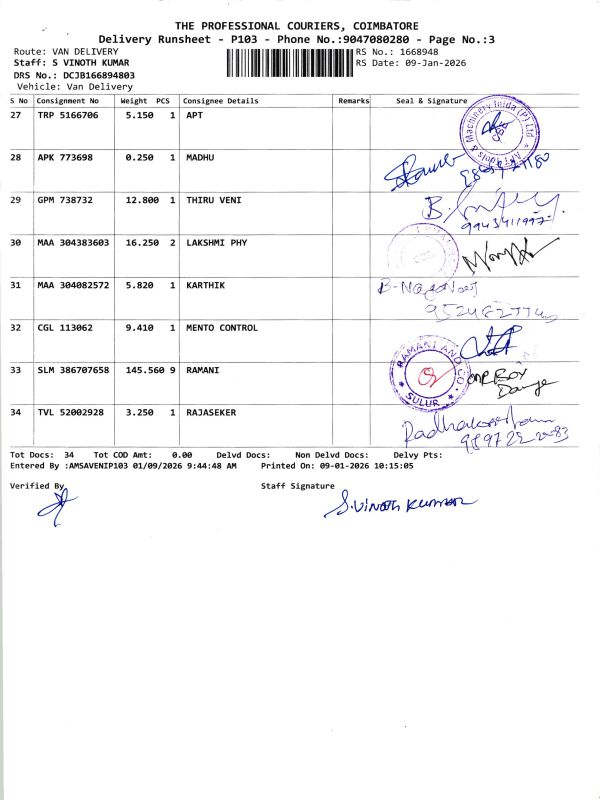 THE PROFESSIONAL COURIERS, COIMBATORE
Delivery Runsheet - P103 - Phone No.:9047080280 - Page No.:3
Route: VAN DELIVERY
RS No.: 1668948
Staff: S VINOTH KUMAR
RS Date: 09-Jan-2026
DRS No.: DCJB166894803
Vehicle: Van Delivery
S No Consignment No Weight PCS Consignee Details Remarks Seal & Signature
27 TRP 5166706 5.150 1 APT
28 APK 773698 0.250 1 MADHU
29 GPM 738732 12.800 1 THIRU VENI
9943411997
30 MAA 304383603 16.250 2 LAKSHMI PHY
31 MAA 304082572 5.820 1 KARTHIK
32 CGL 113062 9.410 1 MENTO CONTROL
33 SLM 386707658 145.560 9 RAMANI
RAMANI AND CO
SULUR
BOX
34 TVL 52002928 3.250 1 RAJASEKER
Tot Docs: 34 Tot COD Amt: 0.00 Delvd Docs: Non Delvd Docs: Delvy Pts:
Entered By :AMSAVENIP103 01/09/2026 9:44:48 AM Printed On: 09-01-2026 10:15:05
Verified By
Staff Signature
S.VINOTH KUMAR